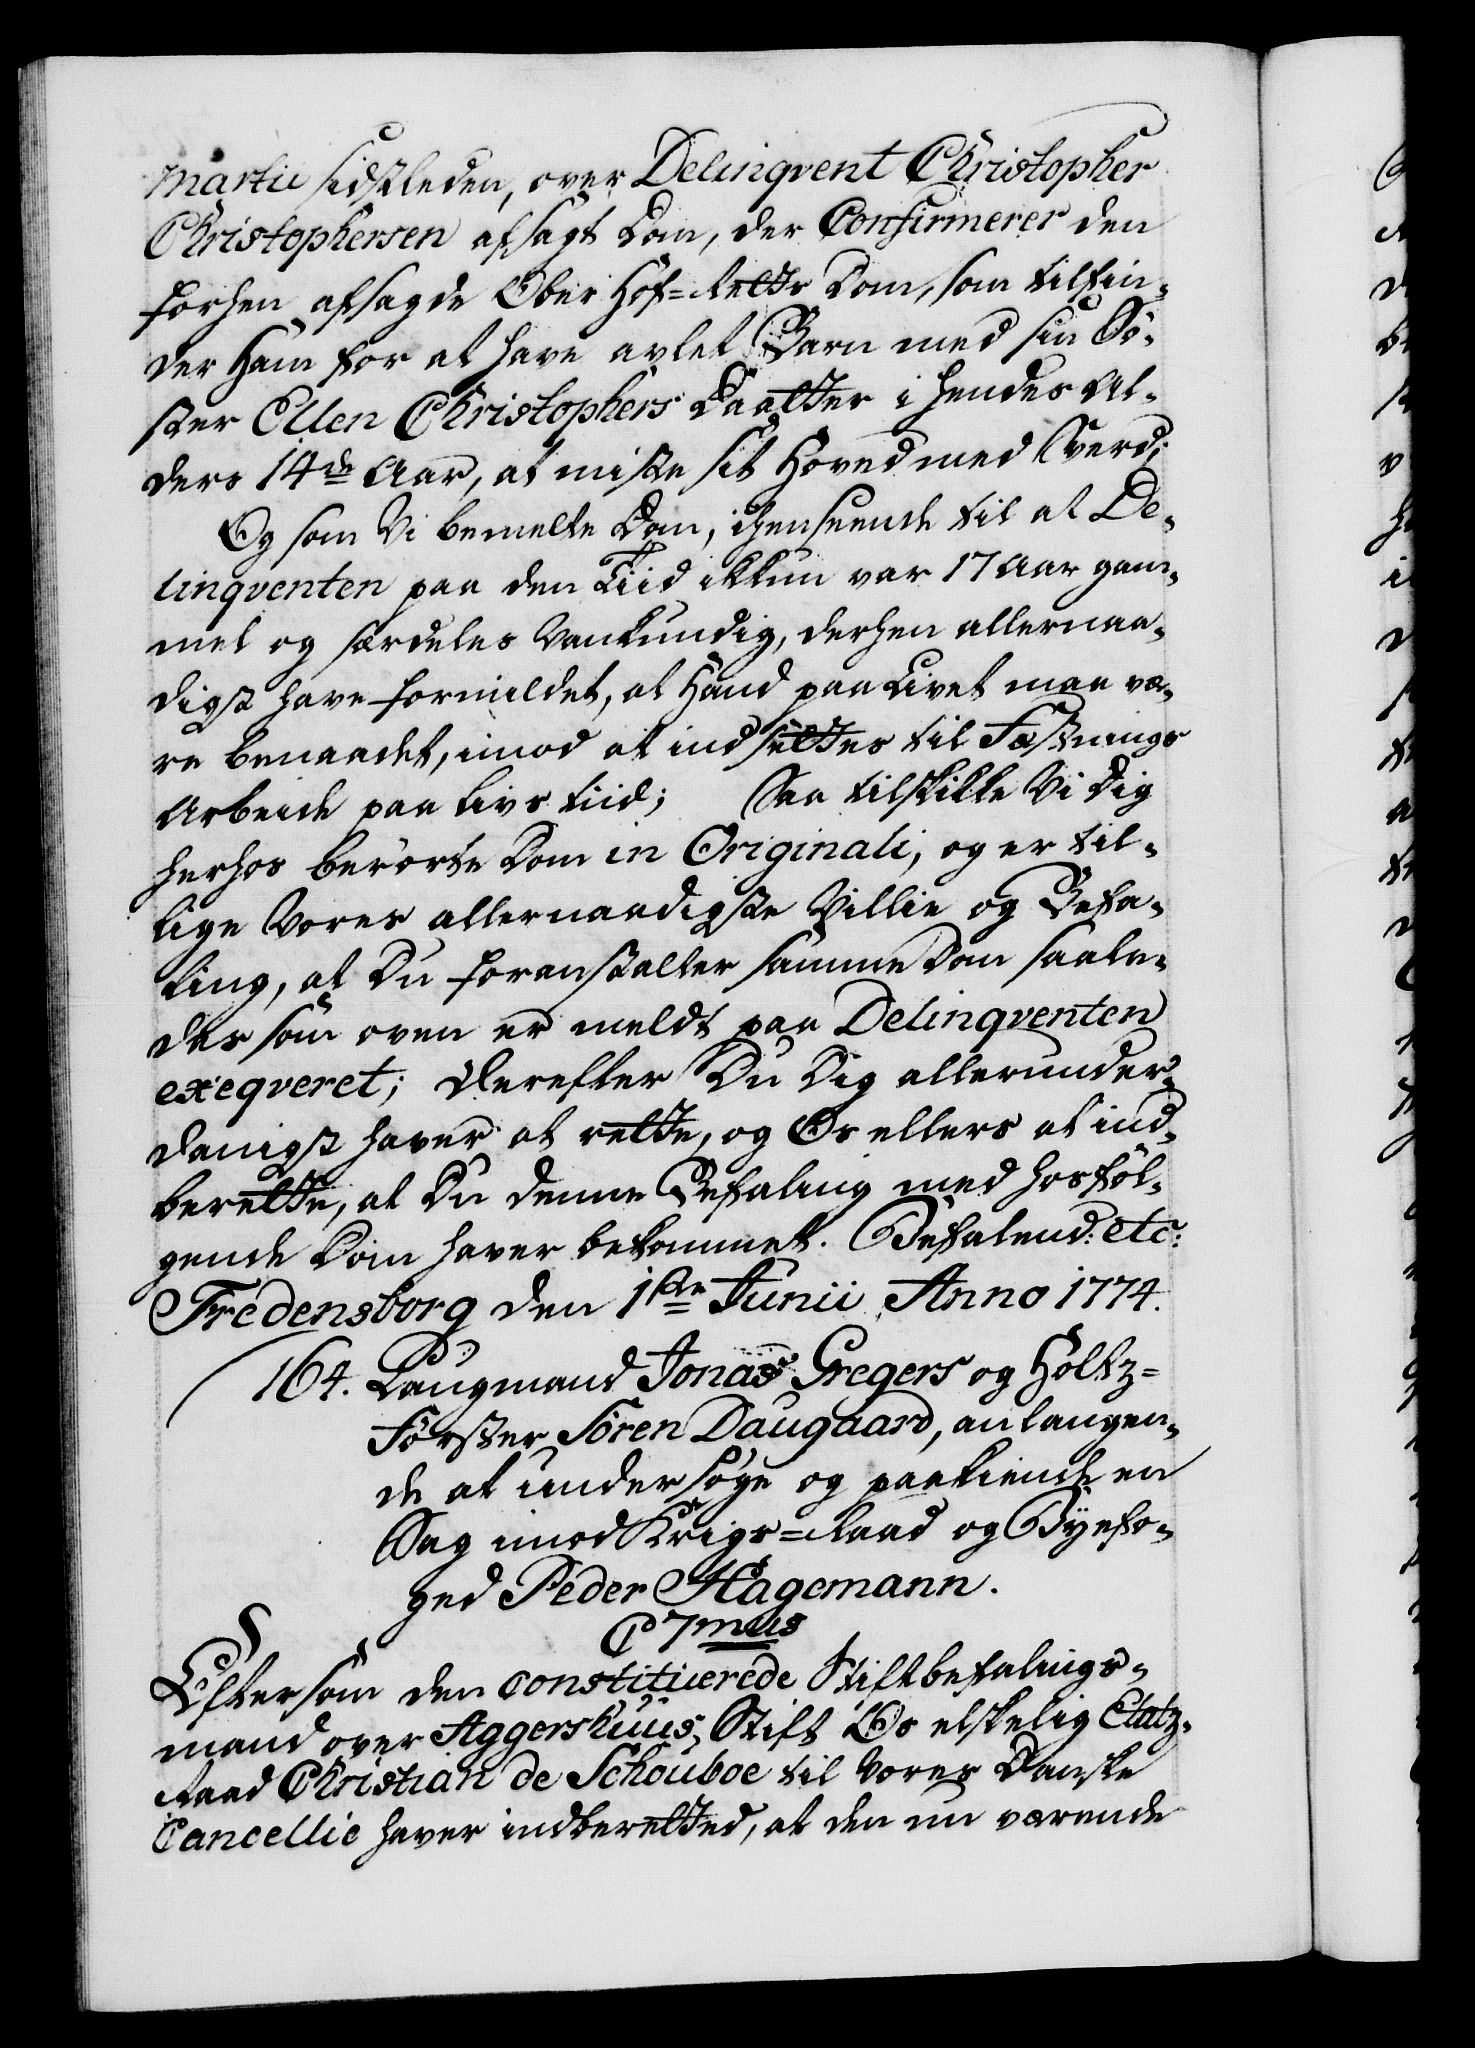 Martii sidstleden, over Delinqvent Christopher
Christophersen afsagt Dom, der Confirmerer den
forhen afsagde Ober Hof-Retts Dom, som tilfin-
der Ham for at have avlet Barn med sin Sö-
ster Ellen Christophers Daatter i hendes Al-
ders 14de Aar, at miste sit Hoved med Sverd;
Og som Vi bemelte Dom, i henseende til at De-
linqventen paa den Tiid ikkun var 17 Aar gam-
mel og særdeles Vankundig, derhen allernaa-
digst have formildet, at Hand paa Livet maa væ-
re benaadet, imod at indsettes til Fæstnings
Arbeide paa livs tiid; Saa tilskikke Vi Dig
herhos berörte Dom in Originali, og er til-
lige Vores allernaadigste Villie og Befa-
ling, at Du foranstalter samme Dom saale-
des som oven er meldt paa Delinqventen
exeqveret; Derefter Du Dig allerunder-
danigst haver at rette, og Os ellers at ind-
berette, at Du denne Befaling med hosföl-
gende Dom haver bekommet. Befalend: etc:
Fredensborg den 1ste Junii Anno 1774.
164. Laugmand Jonas Gregers og Holtz-
Förster Sören Daugaard, anlangen-
de at undersöge og paakiende en
Sag imod Krigs-Raad og Byefo-
ged Peder Hagemann.
C 7mus
Eftersom den constituerede Stiftbefalings-
mand over Aggershuus Stift Os elskelig Etatz-
Raad Christian de Schouboe til vores Danske
Cancellie haver indberetted, at den nu værende